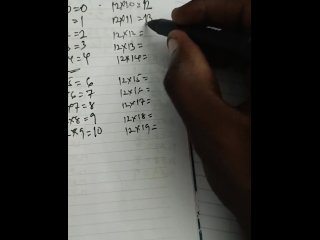 0=0 12×10=12
=1 12×11=13
=2 12×12=
=3 12×13=
×4=4 12×14=
×5=5
=6 12×15=
=7 12×16=
×7=8 12×17=
×8=9 12×18=
×9=10 12×19=